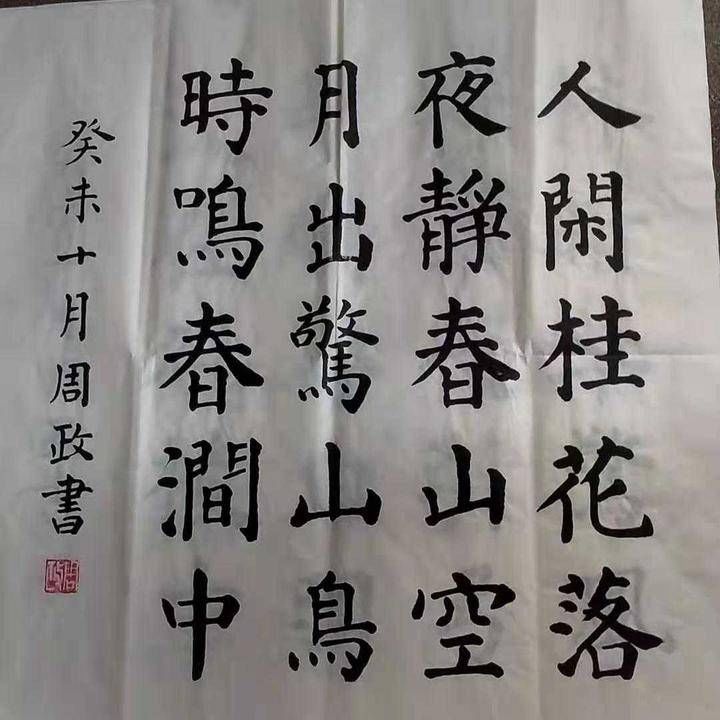 人閑桂花落
夜靜春山空
月出驚山鳥
時鳴春澗中
癸未十月周政書
周政